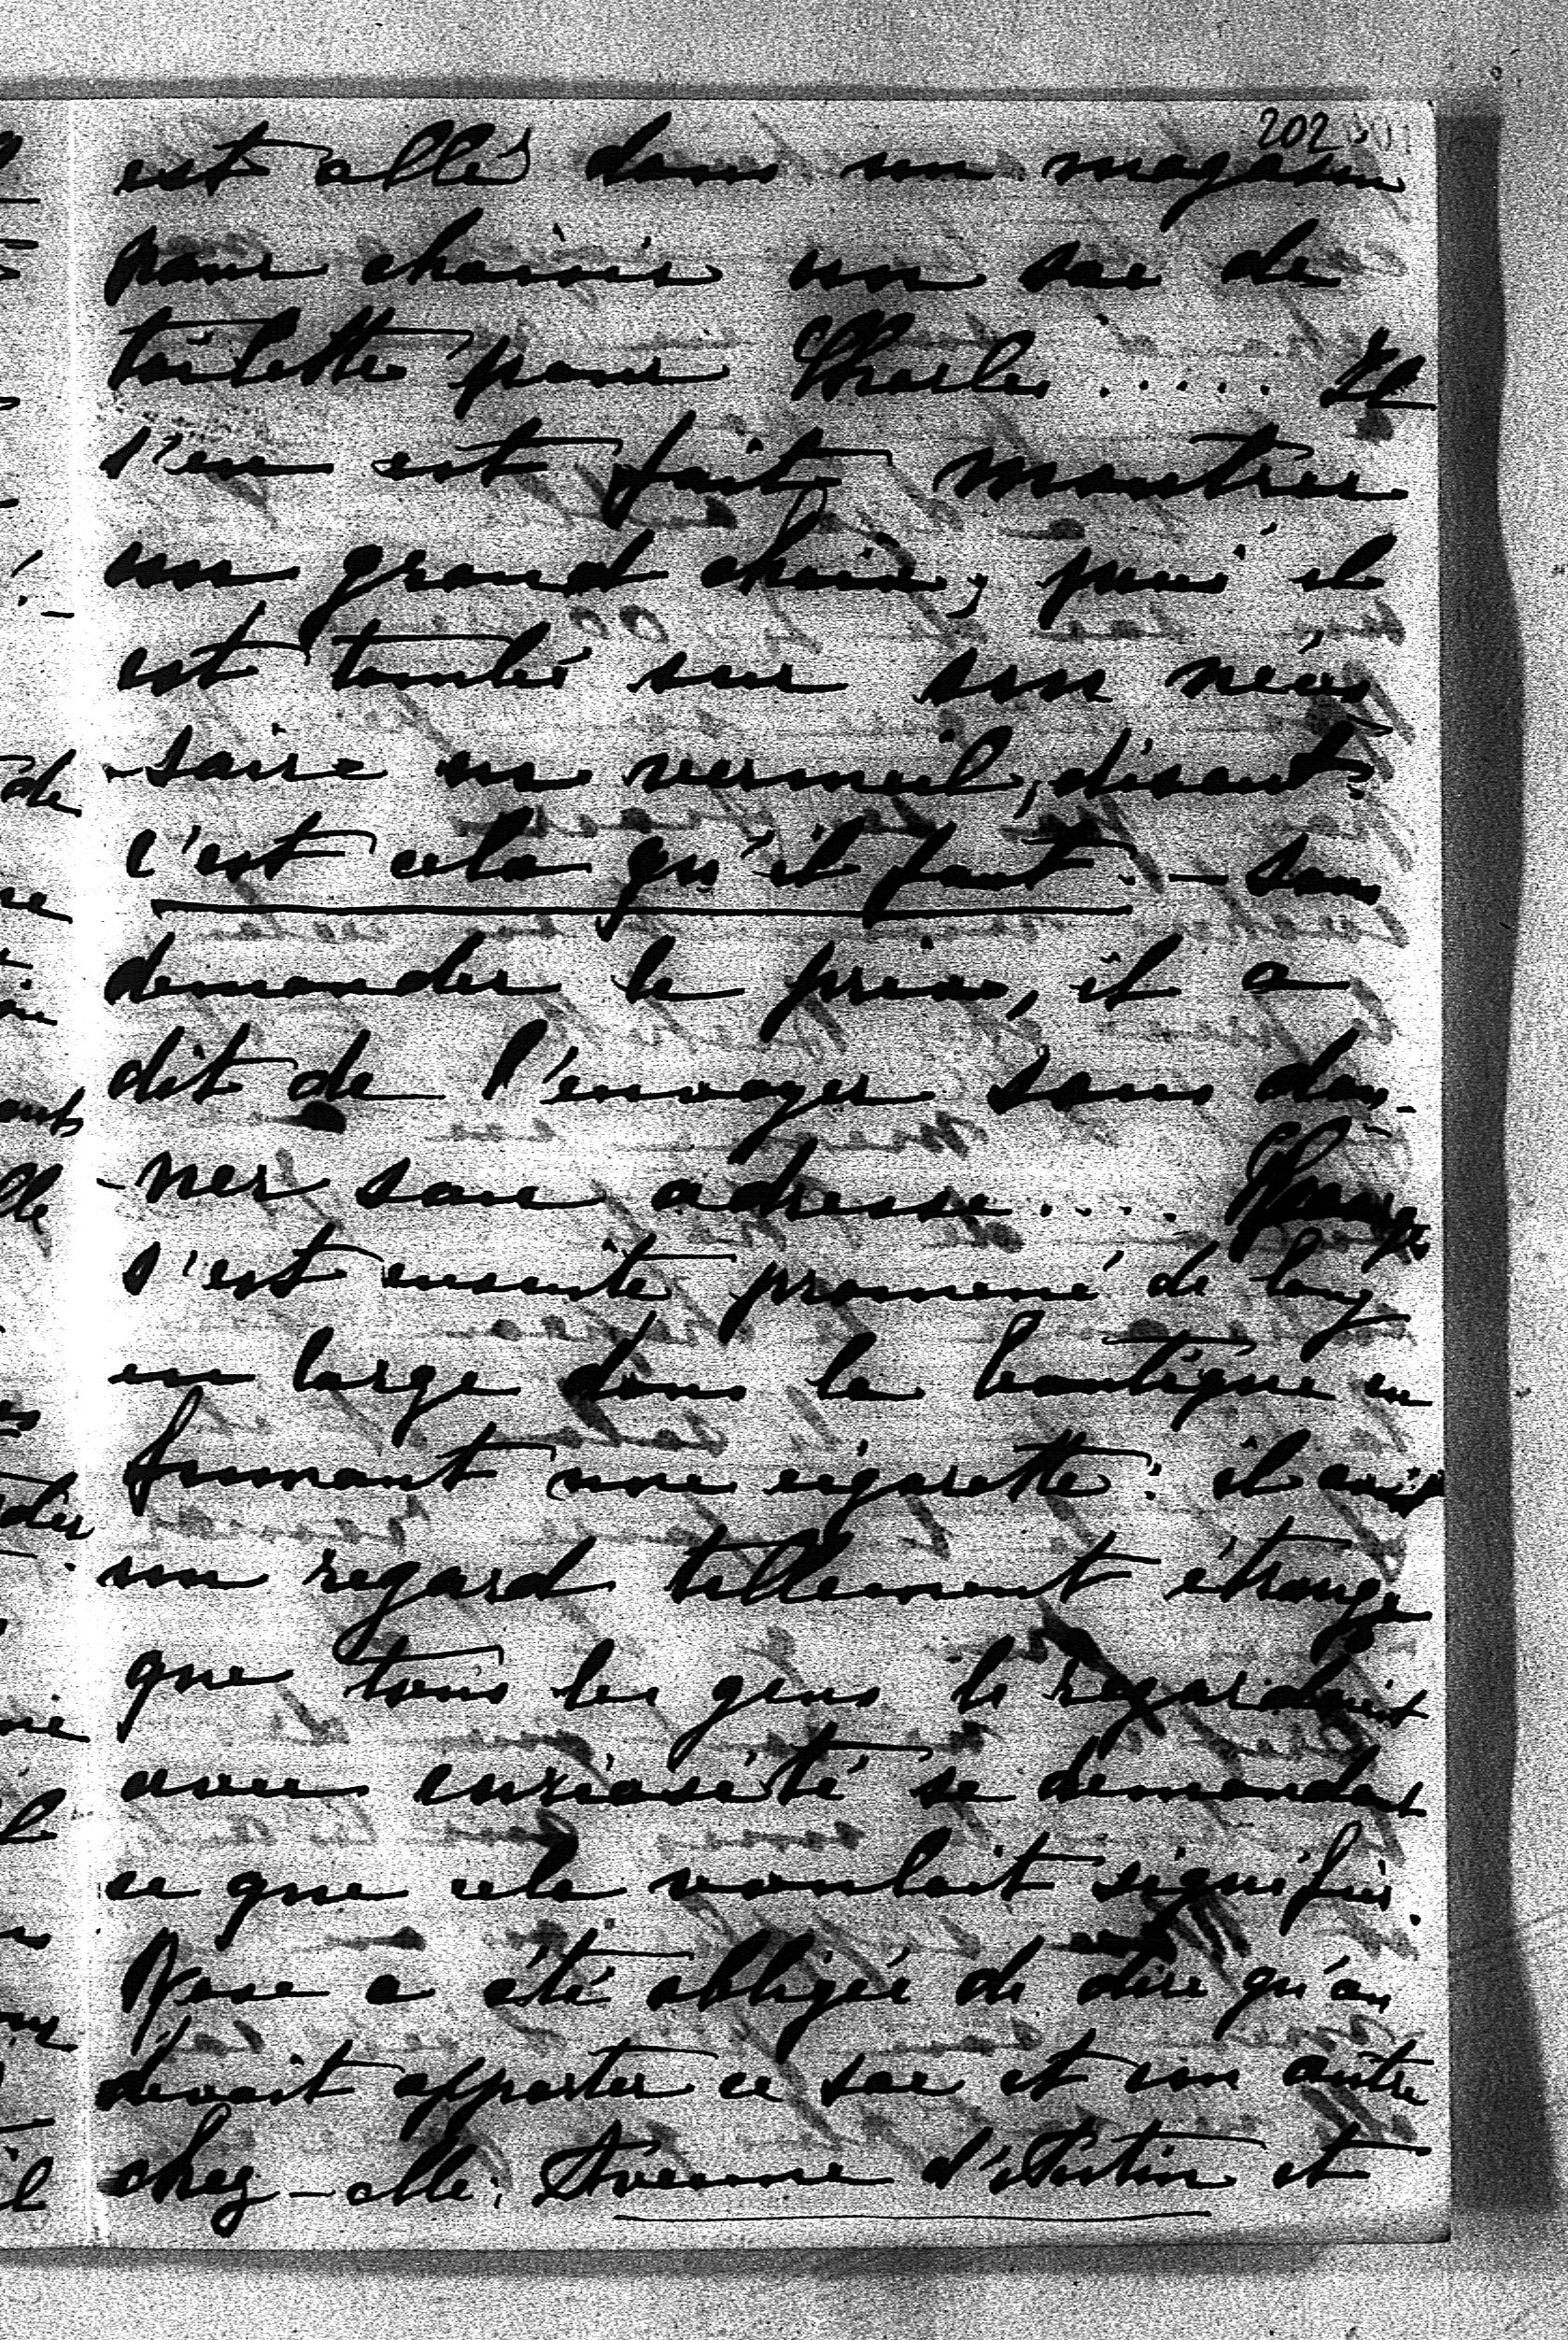 202
est allé dans un magasin
pour choisir un sac de
toilette pour Charles ..... Il
s'en est fait montrer
un grand choix, puis il
est tombé sur un néces
-saire en vermeil, disant:
c'est cela qu'il faut. - sans
demander le prix, il a
dit de l'envoyer sans don-
-ner son adresse .....
s'est ensuite promené de long
en large dans la boutique en
fumant une cigarette: il avait
un regard tellement étrange
que tous les gens le regardaient
avec curiosité se demandant
ce que cela voulait signifier.
Rose a été obligée de dire qu'on
devait apporter ce sac et un autre
chez-elle: Avenue d'Antin et